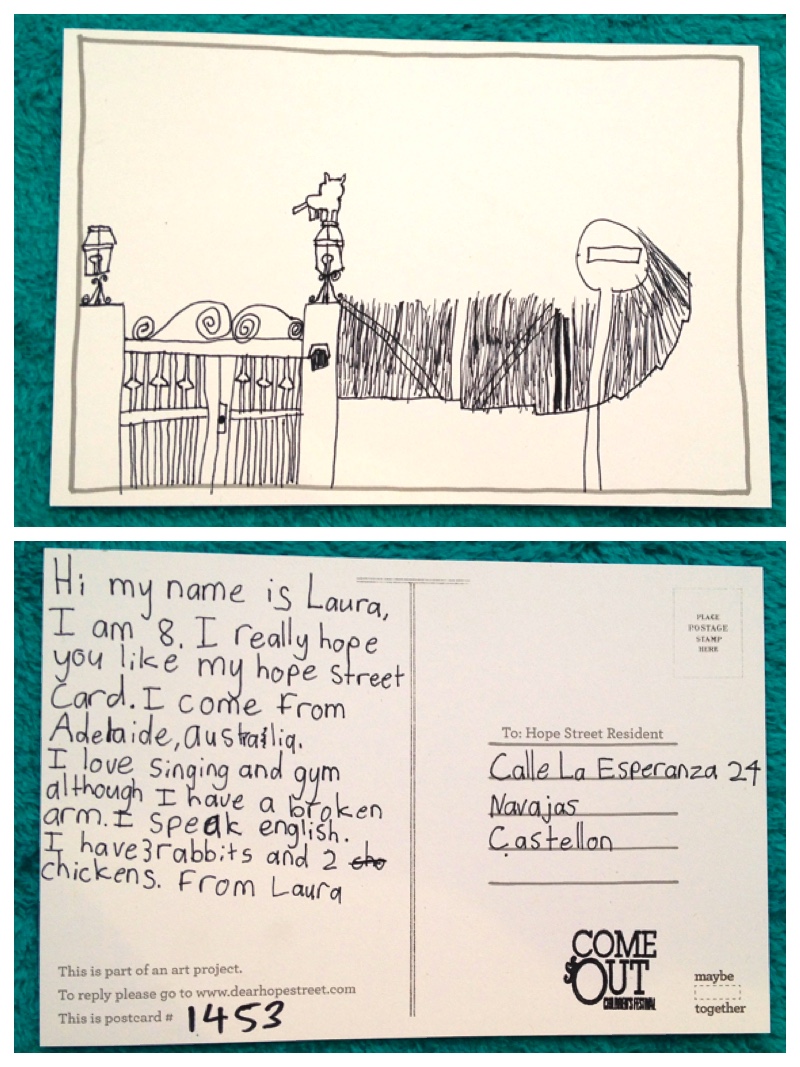 Hi my name is Laura,
I am 8. I really hope
you like my hope street
Card. I come from
Adelaide, australia.
I love singing and gym
although I have a broken
arm. I speak english.
I have 3 rabbits and 2 cho
chickens. From Laura
This is part of an art project.
To reply please go to www.dearhopestreet.com
This is postcard # 1453
PLACE
POSTAGE
STAMP
HERE
To: Hope Street Resident
Calle La Esperanza 24
Navajas
Castellon
COME
OUT
CHILDREN'S FESTIVAL
maybe
together